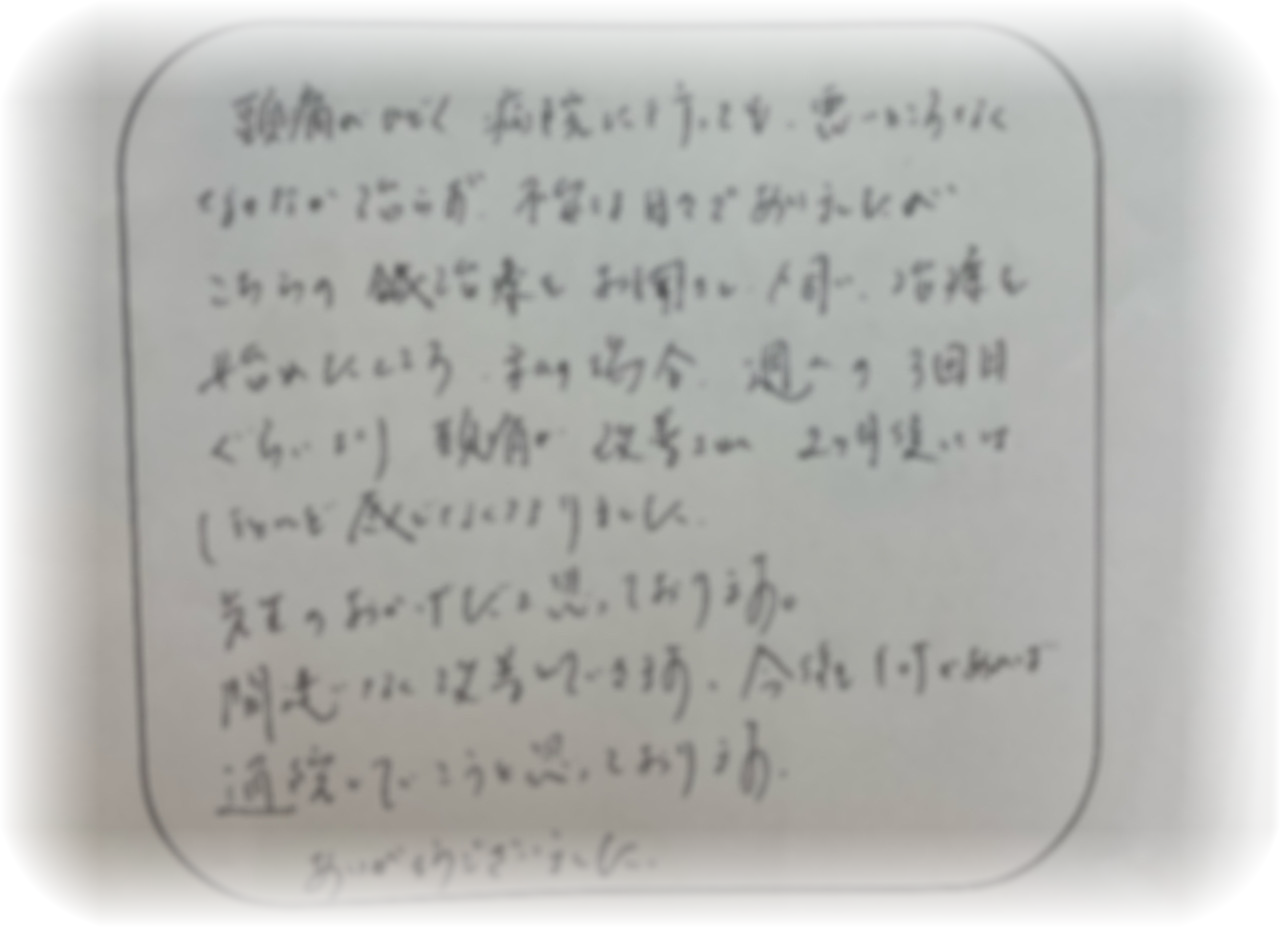 頭痛がひどく 病院に行っても、悪いところなく
なかなか治らず、不安な日々でありましたが
こちらの 鍼治療を お聞きし 治療を
始めたところ、私の場合、週一の 3回目
ぐらいより 頭痛が 改善され 2ヶ月後には
ほとんど感じなくなりました。
先生のおかげだと思っております。
間違いなく改善していきます。今後も 何かあれば
通院していこうと思っております。
ありがとうございました。